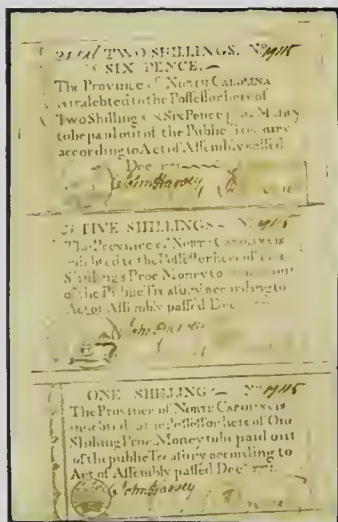 TWO SHILLINGS. No 19115
& SIX PENCE.
The Province of NORTH CAROLINA
is indebted to the Poſſeſſor hereof
Two Shillings & Six Pence Money
to be paid out of the Public Treasury
according to Act of Aſſembly paſſed
Dec
John Harvey
FIVE SHILLINGS No 19115
The Province of NORTH CAROLINA is
indebted to the Poſſeſſor hereof
Shillings Proc Money to
of the Public Treaſury according to
Act of Aſſembly paſſed Dec
John Harvey
ONE SHILLING No 19115
The Province of NORTH CAROLINA is
indebted to the Poſſeſſor hereof One
Shilling Proc Money to be paid out
of the public Treaſury according to
Act of Aſſembly paſſed Decr 1771
John Harvey